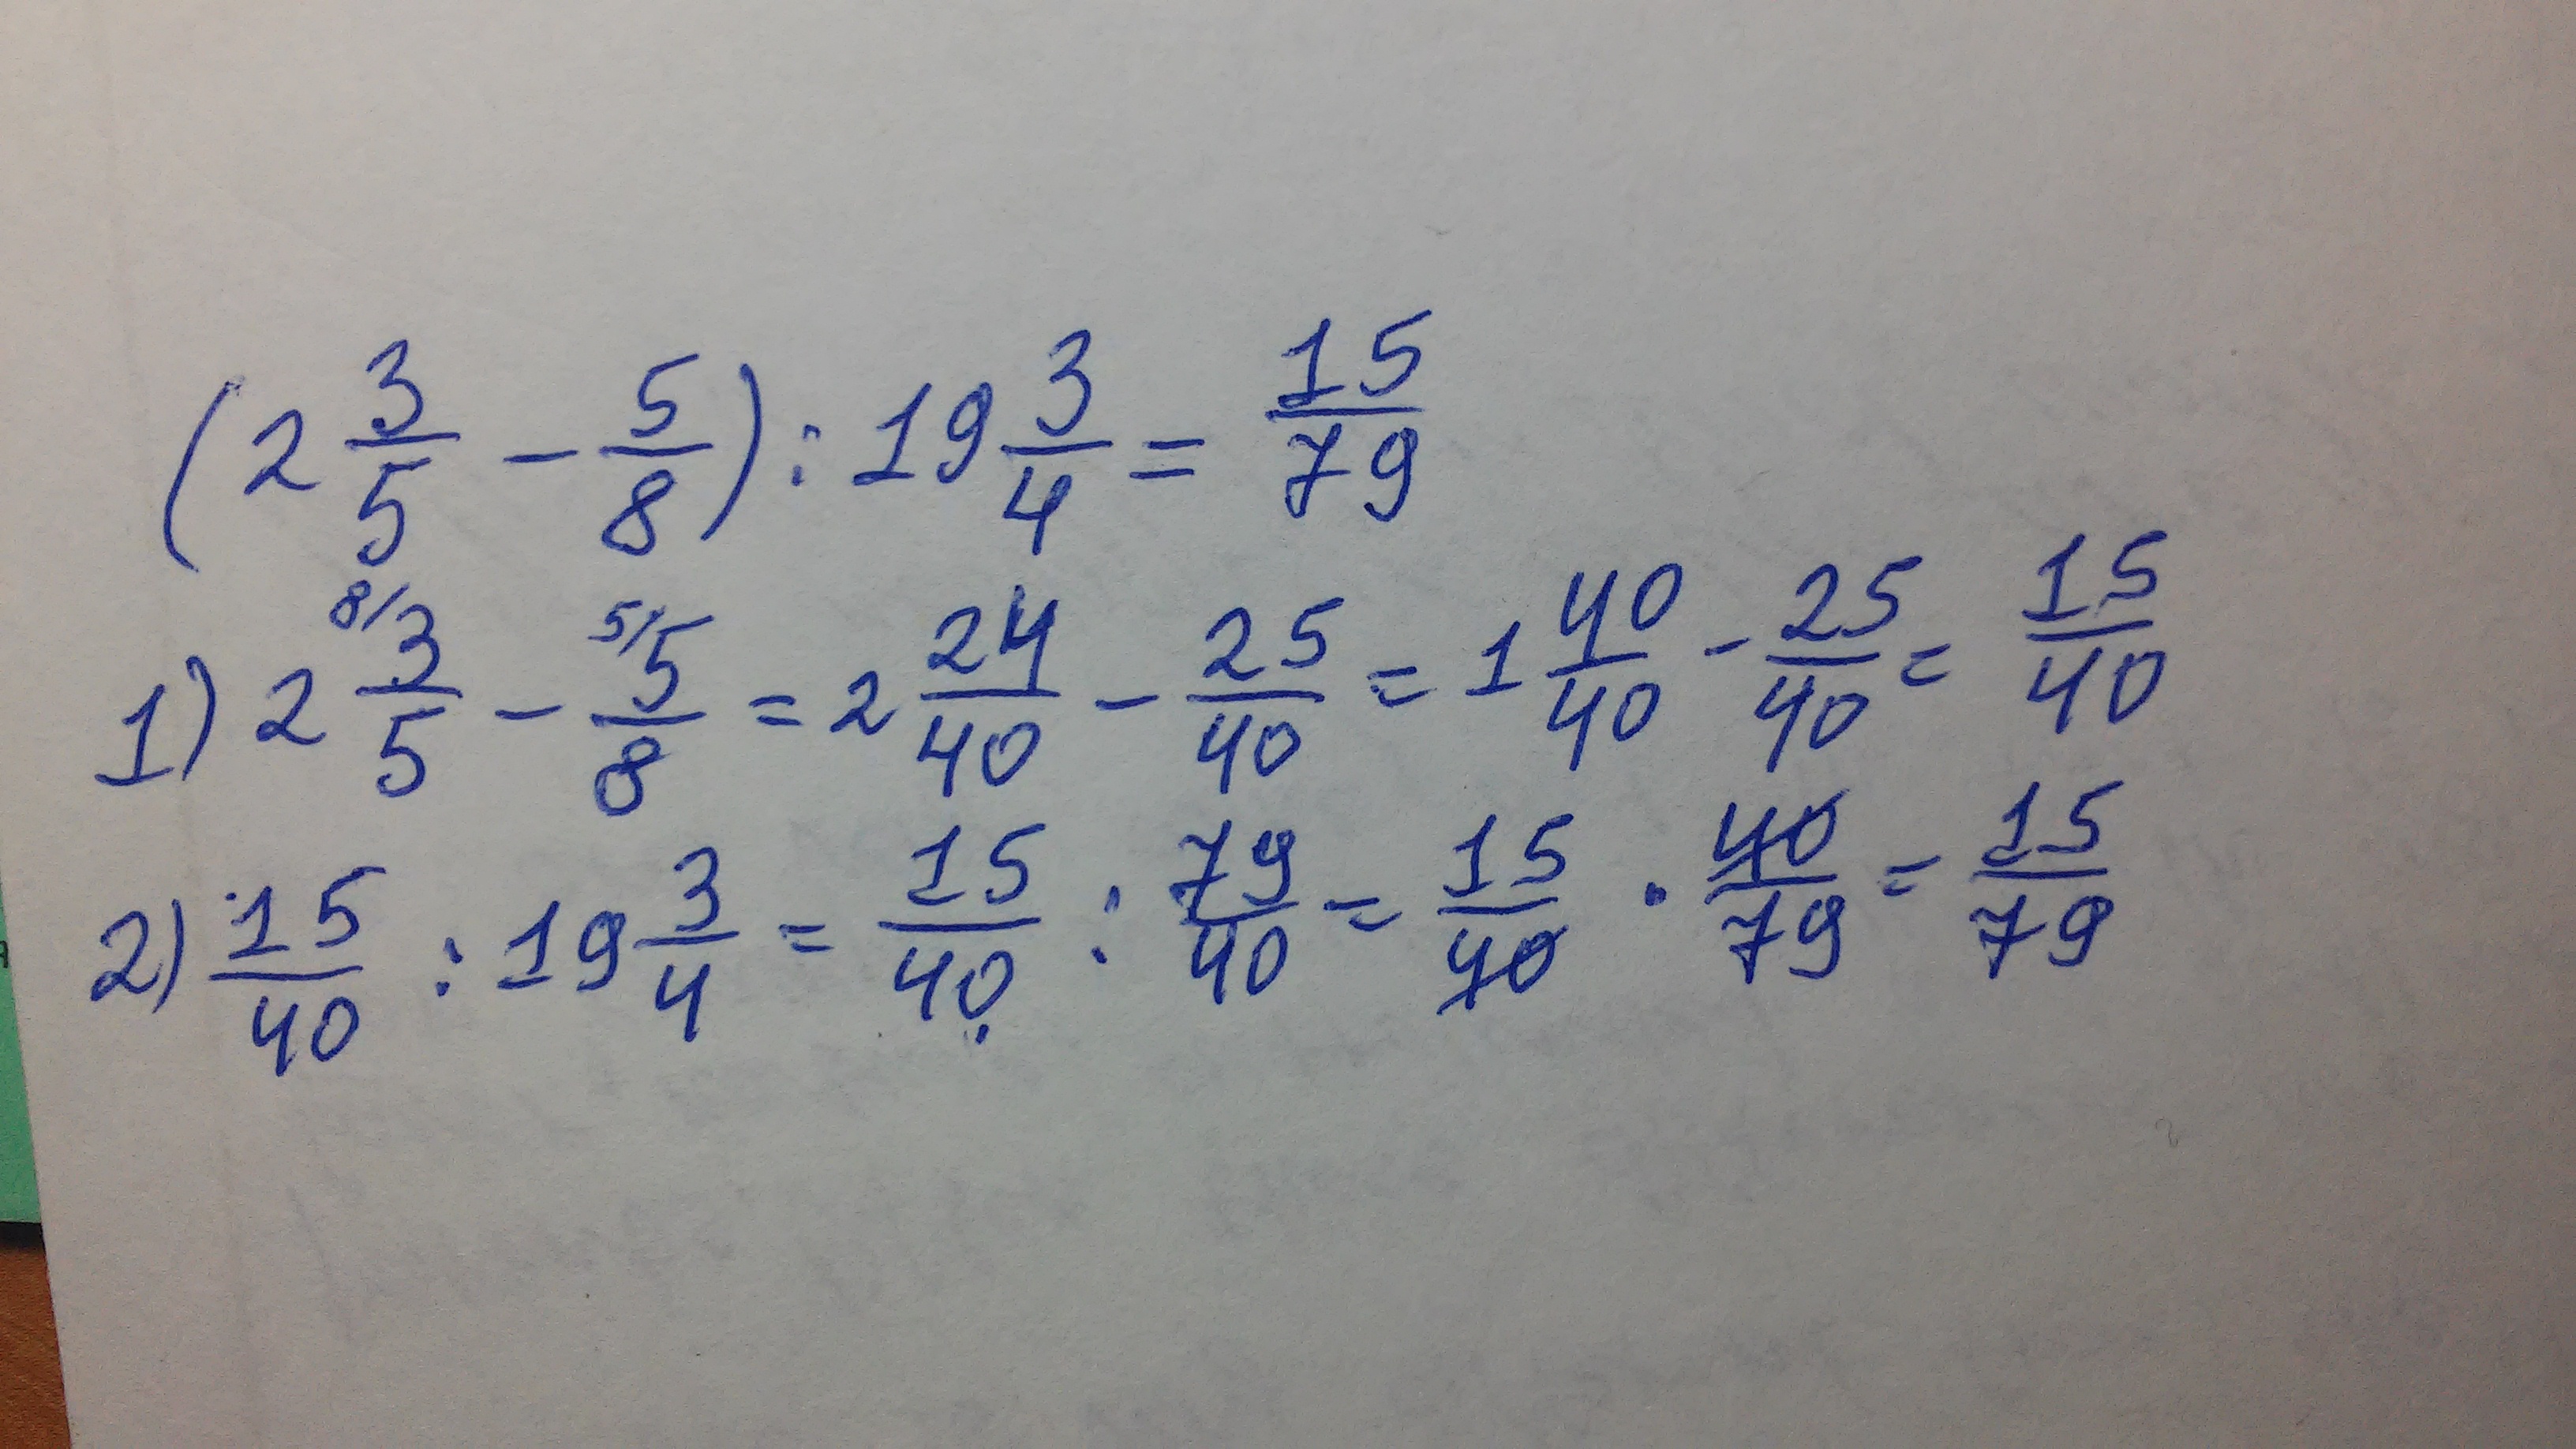 (2 3/5 - 5/8) : 19 3/4 = 15/79
1) 2 8/ 3/5 - 5/ 5/8 = 2 24/40 - 25/40 = 1 40/40 - 25/40 = 15/40
2) 15/40 : 19 3/4 = 15/40 : 79/40 = 15/40 · 40/79 = 15/79